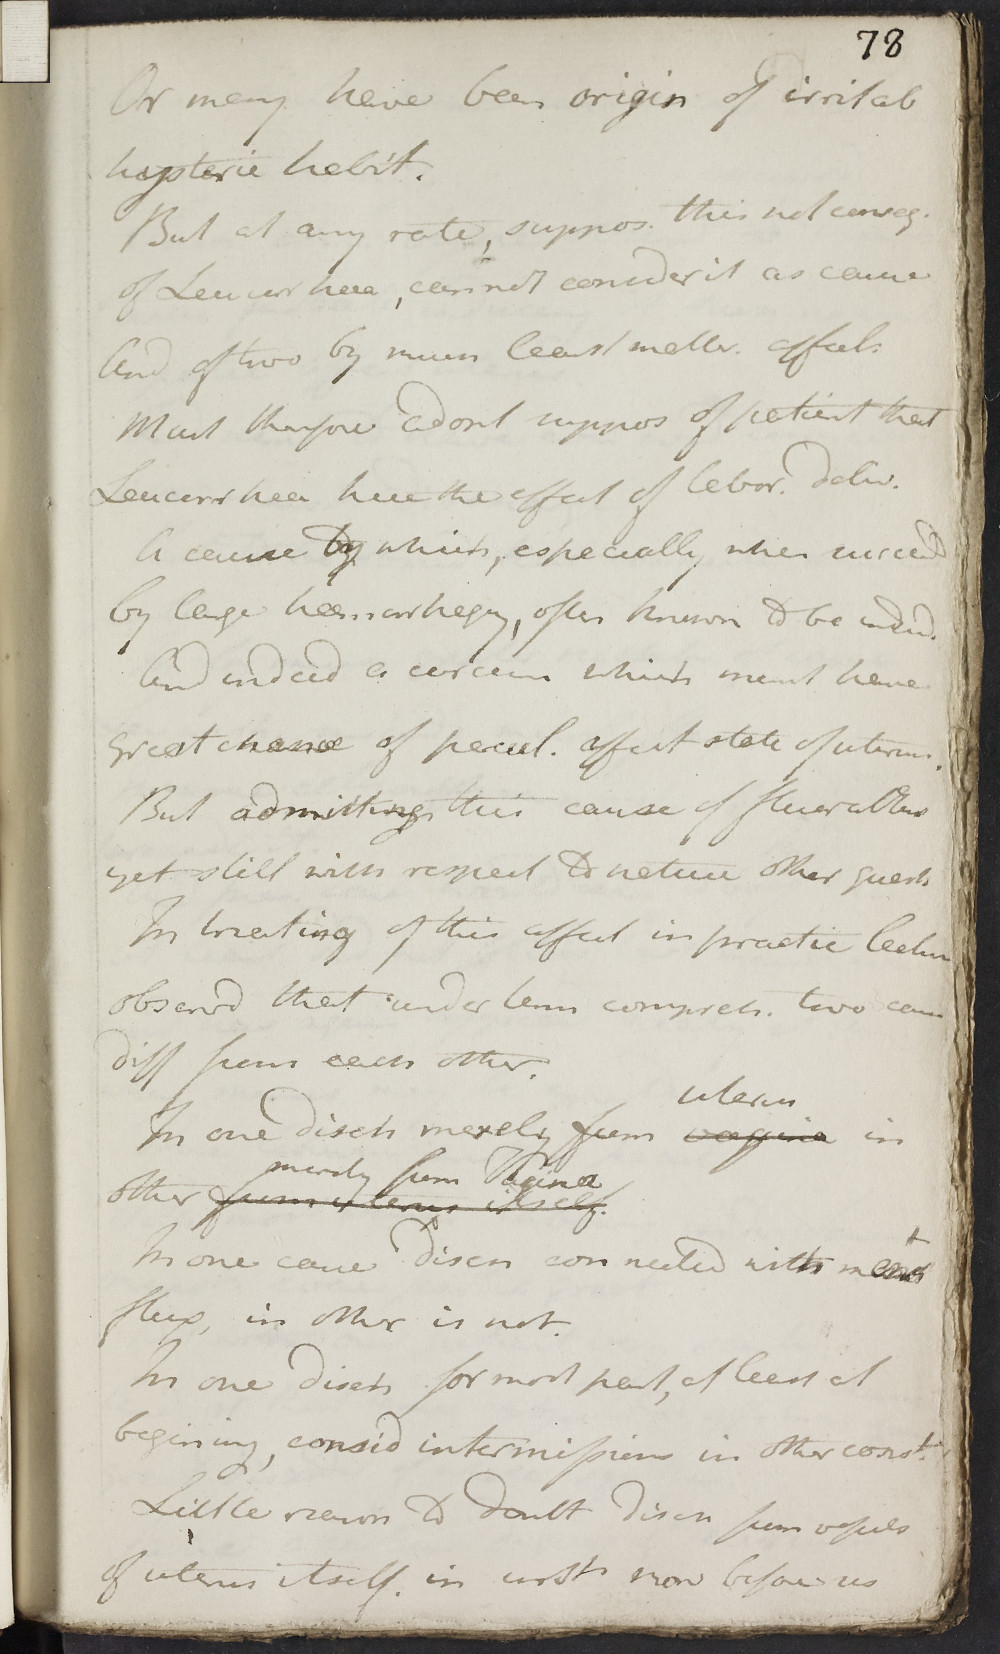 78
Or may have been origin of irritab
hysteric habit.
But at any rate, suppos. this not conseq.
of Leucorrhea, cannot consider it as cause
And of two by much least matter. affect.
Must therefore adopt suppos of patient that
Leucorrhea here the effect of labor. Deliv.
A cause by which, especially when succeed
by large haemorrhagy, often known to be induc.
And indeed a circum which must have
great chance of pecul. affect state of uterus.
But admitting this cause of fluor albus
yet still with respect to nature other quest
In treating of this affect in practic lectur
observd that under term compreh. two cases
diff from each other.
uterus
In one disch merely from vagina in
merely from Vagina
other from uterus itself.
In one case disch connected with menst
flux, in other is not.
In one disch for most part, at least at
begining, consid intermissions in other const.
Little reason to doubt disch from vessels
of uterus itself. in now before us